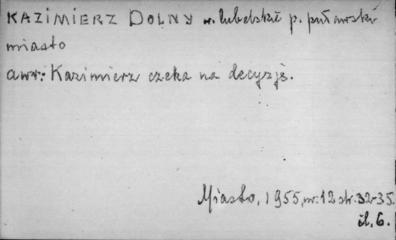 KAZIMIERZ DOLNY w. lubelskie p. puławski
miasto
aw: Kazimierz czeka na decyzje.
Miasto, 1955, nr. 12 str. 32-35.
il. 6.